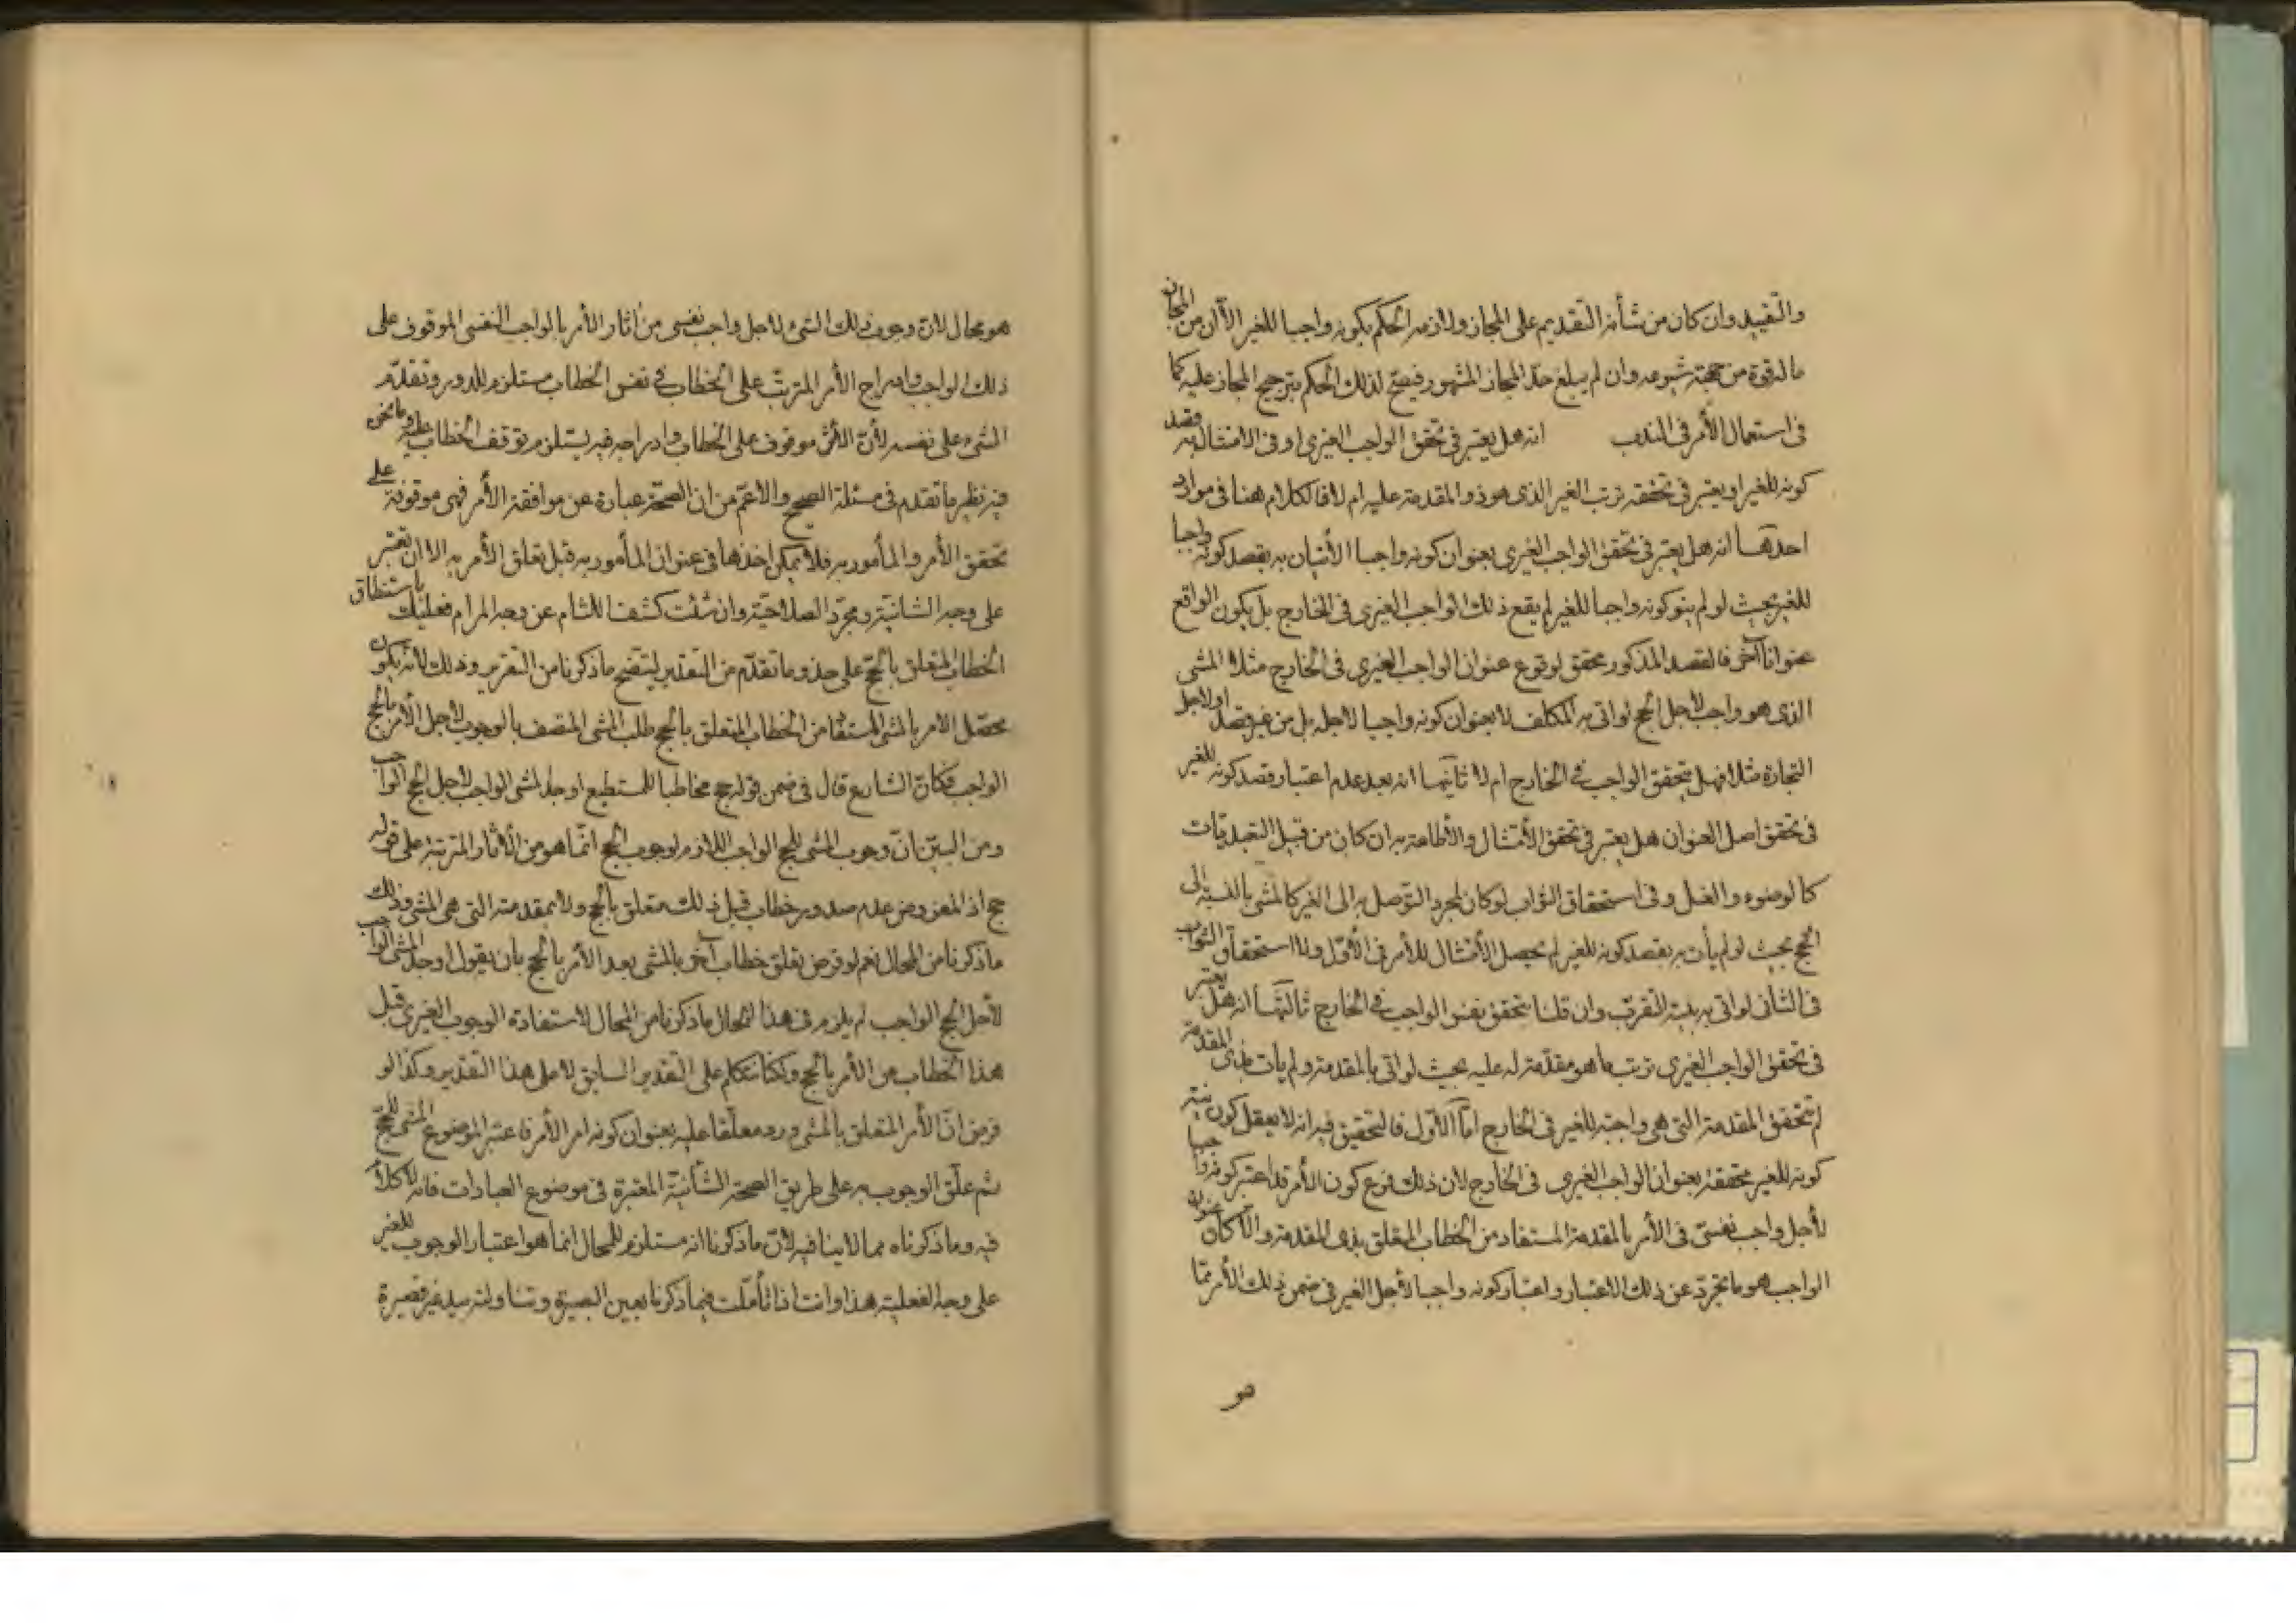 والتقييد وان كان من شأنه التقديم على المجاز ولازمه الحكم بكونه واجبا للغير الا ان من المجاز
ما له قوة من جهة شيوعه وان لم يبلغ حدّ المجاز المشهور فيصح لذلك الحكم بترجيح المجاز عليه كما
فى استعمال الأمر فى الندب انه هل يعتبر فى تحقق الواجب الغيرى او فى الامتثال به قصد
كونه للغير او يعتبر فى تحققه ترتب الغير الذى هو ذو المقدمة عليه ام لا فالكلام هنا فى موارد
احدها انه هل يعتبر فى تحقق الواجب الغيرى بعنوان كونه واجبا الأتيان به بقصد كونه واجبا
للغير بحيث لو لم ينو كونه واجبا للغير لم يقع ذلك الواجب الغيرى فى الخارج بل يكون الواقع
عنوانا آخر فالقصد المذكور محقق لوقوع عنوان الواجب الغيرى فى الخارج مثلا المشى
الذى هو واجب لاجل الحج لو اتى به المكلف لا بعنوان كونه واجبا لاجله بل من غير قصد او لاجل
التجارة مثلا فهل يتحقق الواجب فى الخارج ام لا ثانيها انه بعد عدم اعتبار قصد كونه للغير
فى تحقق اصل العنوان هل يعتبر فى تحقق الأمتثال والأطاعة به ان كان من قبيل التعبديات
كالوضوء والغسل وفى استحقاق الثواب لو كان لمجرد التوصل به الى الغير كالمشى بالنسبة الى
الحج بحيث لو لم يأت به بقصد كونه للغير لم يحصل الأمتثال للأمر فى الأوّل ولا استحقاق الثواب
فى الثانى لو اتى به بنية التقرب وان قلنا بتحقق نفس الواجب فى الخارج ثالثها انه هل يعتبر
فى تحقق الواجب الغيرى ترتب ما هو مقدّمة له عليه بحيث لو اتى بالمقدمة ولم يأت بذى المقدمة
لم يتحقق المقدمة التى هى واجبة للغير فى الخارج امّا الأوّل فالتحقيق فيه انه لا يعقل كون نية
كونه للغير محققة بعنوان الواجب الغيرى فى الخارج لان ذلك فرع كون الأمر قد اعتبر كونه واجبا
لأجل واجب نفسىّ فى الأمر بالمقدمة المستفاد من الخطاب المتعلق بذى المقدمة والا كان عنوان
الواجب هو ما تجرّد عن ذلك الاعتبار واعتبار كونه واجبا لأجل الغير فى ضمن ذلك الأمر ممّا
هو
هو محال لانّ وجوب ذلك الشىء لاجل واجب نفسى من اثار الأمر بالواجب النفسى الموقوف على
ذلك الواجب وادراج الأمر المترتب على الخطاب فى نفس الخطاب مستلزم للدور وتقدّم
الشىء على نفسه لأنّ الأثر موقوف على الخطاب وادراجه فيه يستلزم توقف الخطاب عليه وما نحن
فيه نظير ما تقدم فى مسئلة الصحيح والاعمّ من ان الصحّة عبارة عن موافقة الأمر فهى موقوفة على
تحقق الأمر والمأمور به فلا يمكن اخذها فى عنوان المأمور به قبل تعلق الأمر به الا ان تعتبر
على وجه الشانيّة ومجرّد الصلاحيّة وان شئت كشف اللثام عن وجه المرام فعليك باستنطاق
الخطاب المتعلق بالحجّ على حذو ما تقدّم من التقدير ليتضح ما ذكرنا من التقرير وذلك لانه يكون
محصّل الامر بالمشى المستفاد من الخطاب المتعلق بالحج طلب المشى المتصف بالوجوب لاجل الأمر بالحج
الواجب فكانّ الشارع قال فى ضمن قوله حج مخاطبا للمستطيع اوجد المشى الواجب لاجل الحج الواجب
ومن البيّن انّ وجوب المشى للحج الواجب اللازم لوجوب الحج انّما هو من الأثار المترتبة على قوله
حج اذ المفروض عدم صدور خطاب قبل ذلك متعلق بالحج ولا بمقدمته التى هى المشى وذلك
ما ذكرنا من المحال نعم لو فرض تعلق خطاب آخر بالمشى بعد الأمر بالحج بان يقول اوجد المشى الواجب
لأجل الحج الواجب لم يلزم فى هذا المحال ما ذكرنا من المحال لاستفادة الوجوب الغيرى قبل
هذا الخطاب من الأمر بالحج ولكنا نتكلم على التقدير السابق لا على هذا التقدير وكذا لو
فرض انّ الأمر المتعلق بالمشى ورد معلّقا عليه بعنوان كونه امر الأمر فاعتبر الموضوع المشى للحجّ
ثم علّق الوجوب به على طريق الصحة الشأنيّة المعتبرة فى موضوع العبادات فانه لا كلام
فيه وما ذكرناه مما لا ينافيه لأنّ ما ذكرنا انه مستلزم للمحال انما هو اعتبار الوجوب للغير
على وجه الفعلية هذا وانت اذا تأمّلت فيما ذكرنا بعين البصيرة وتناولته بيد غير قصيرة